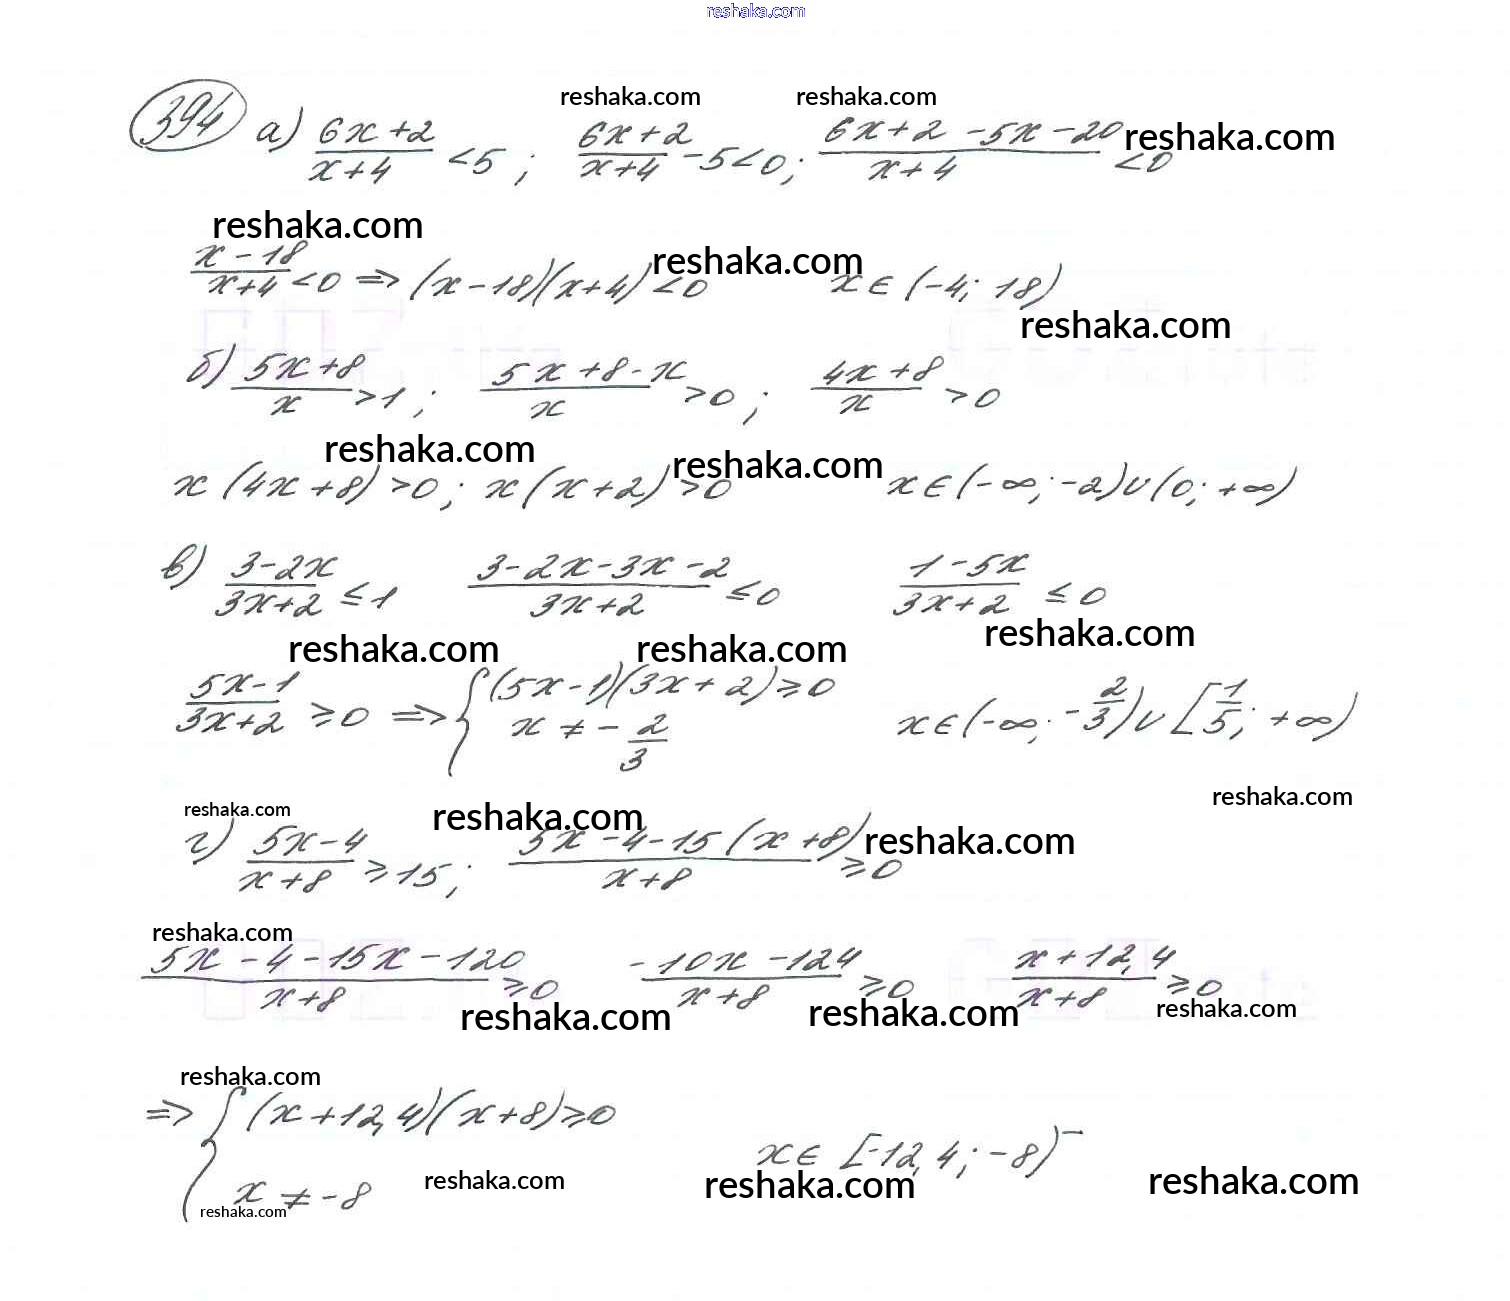 reshaka.com
reshaka.com reshaka.com
394 а) (6x+2)/(x+4) <5 ; (6x+2)/(x+4) -5<0; (6x+2-5x-20)/(x+4) <0 reshaka.com
reshaka.com
(x-18)/(x+4) <0 => (x-18)(x+4)<0 x∈(-4; 18) reshaka.com
reshaka.com
б) (5x+8)/x >1 ; (5x+8-x)/x >0 ; (4x+8)/x >0
reshaka.com reshaka.com
x(4x+8)>0; x(x+2)>0 x∈(-∞; -2)∪(0; +∞)
в) (3-2x)/(3x+2) ≤1 (3-2x-3x-2)/(3x+2) ≤0 (1-5x)/(3x+2) ≤0
reshaka.com reshaka.com reshaka.com
(5x-1)/(3x+2) ≥0 => { (5x-1)(3x+2)≥0
x ≠ -2/3 x∈(-∞; -2/3)∪[1/5; +∞)
reshaka.com reshaka.com reshaka.com
г) (5x-4)/(x+8) ≥15; (5x-4-15(x+8))/(x+8) ≥0 reshaka.com
reshaka.com
(5x-4-15x-120)/(x+8) ≥0 (-10x-124)/(x+8) ≥0 (x+12,4)/(x+8) ≥0
reshaka.com reshaka.com reshaka.com
reshaka.com
=> { (x+12,4)(x+8)≥0
x∈ [-12,4; -8)
x ≠ -8 reshaka.com reshaka.com reshaka.com
reshaka.com